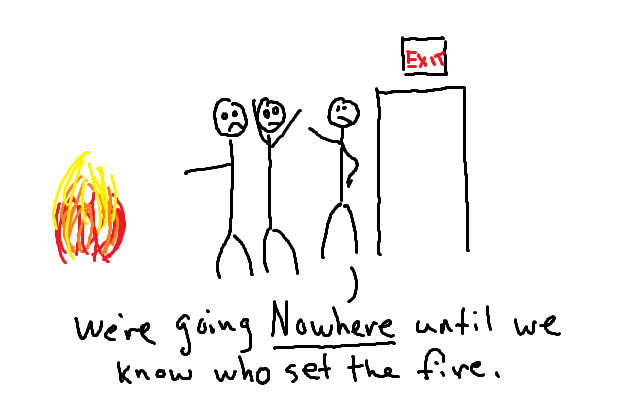 EXIT
We're going Nowhere until we
know who set the fire.